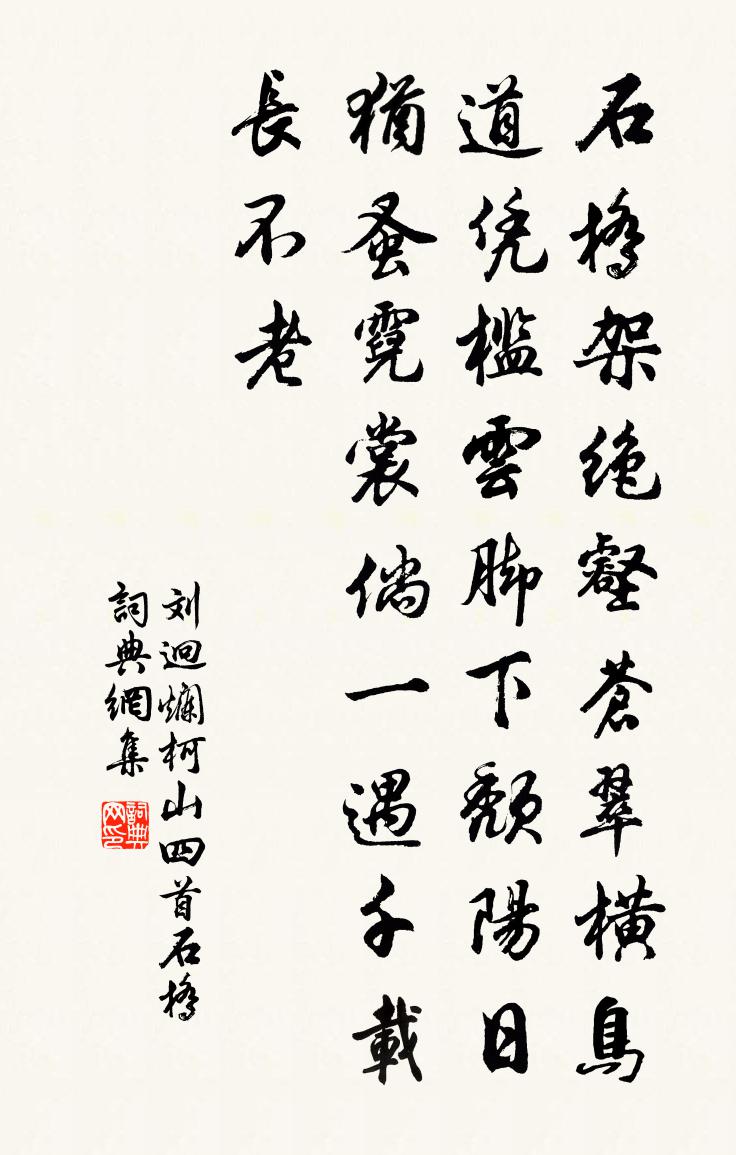 石橋架絶壑蒼翠橫鳥
道凭檻雲脚下頹陽日
猶蚤霓裳倘一遇千載
長不老
刘迥爛柯山四首石橋
詞典網集
詞典網印